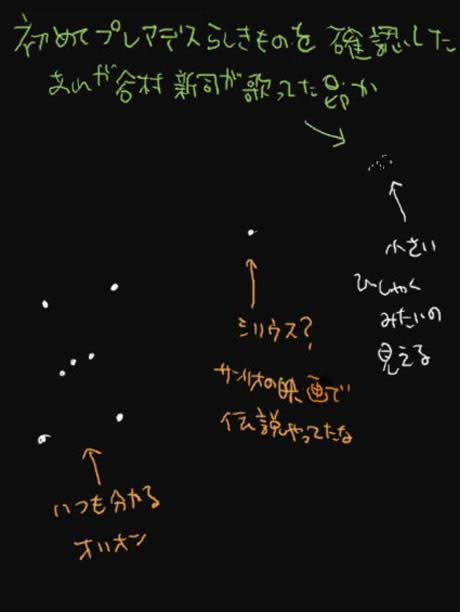 初めてプレアデスらしきものを確認した
あれが谷村新司が歌ってた昴か
小さい
ひしゃく
みたいの
見える
シリウス?
サンリオの映画で
伝説やってたな
いつも分かる
オリオン